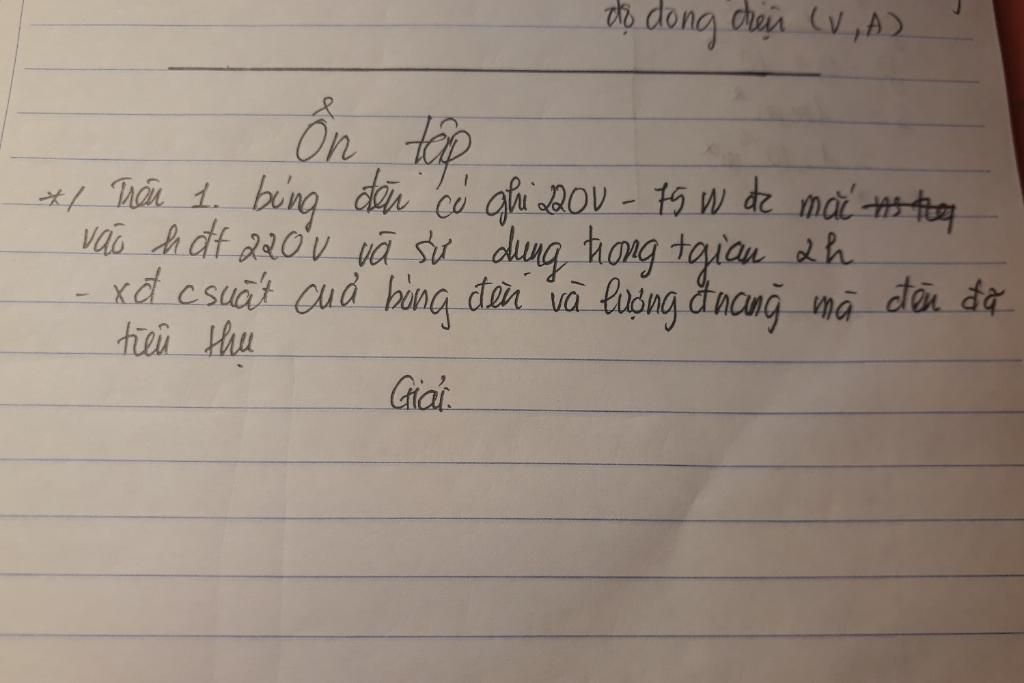 độ dong điện (V, A)
Ôn tập
*/ Trên 1. bóng đèn có ghi 220V - 75 W đc mắc
vào hđt 220V và sử dung trong tgian 2h
- xđ csuất cuả bóng đèn và lượng đnang mà đèn đã
tiêu thụ
Giải.